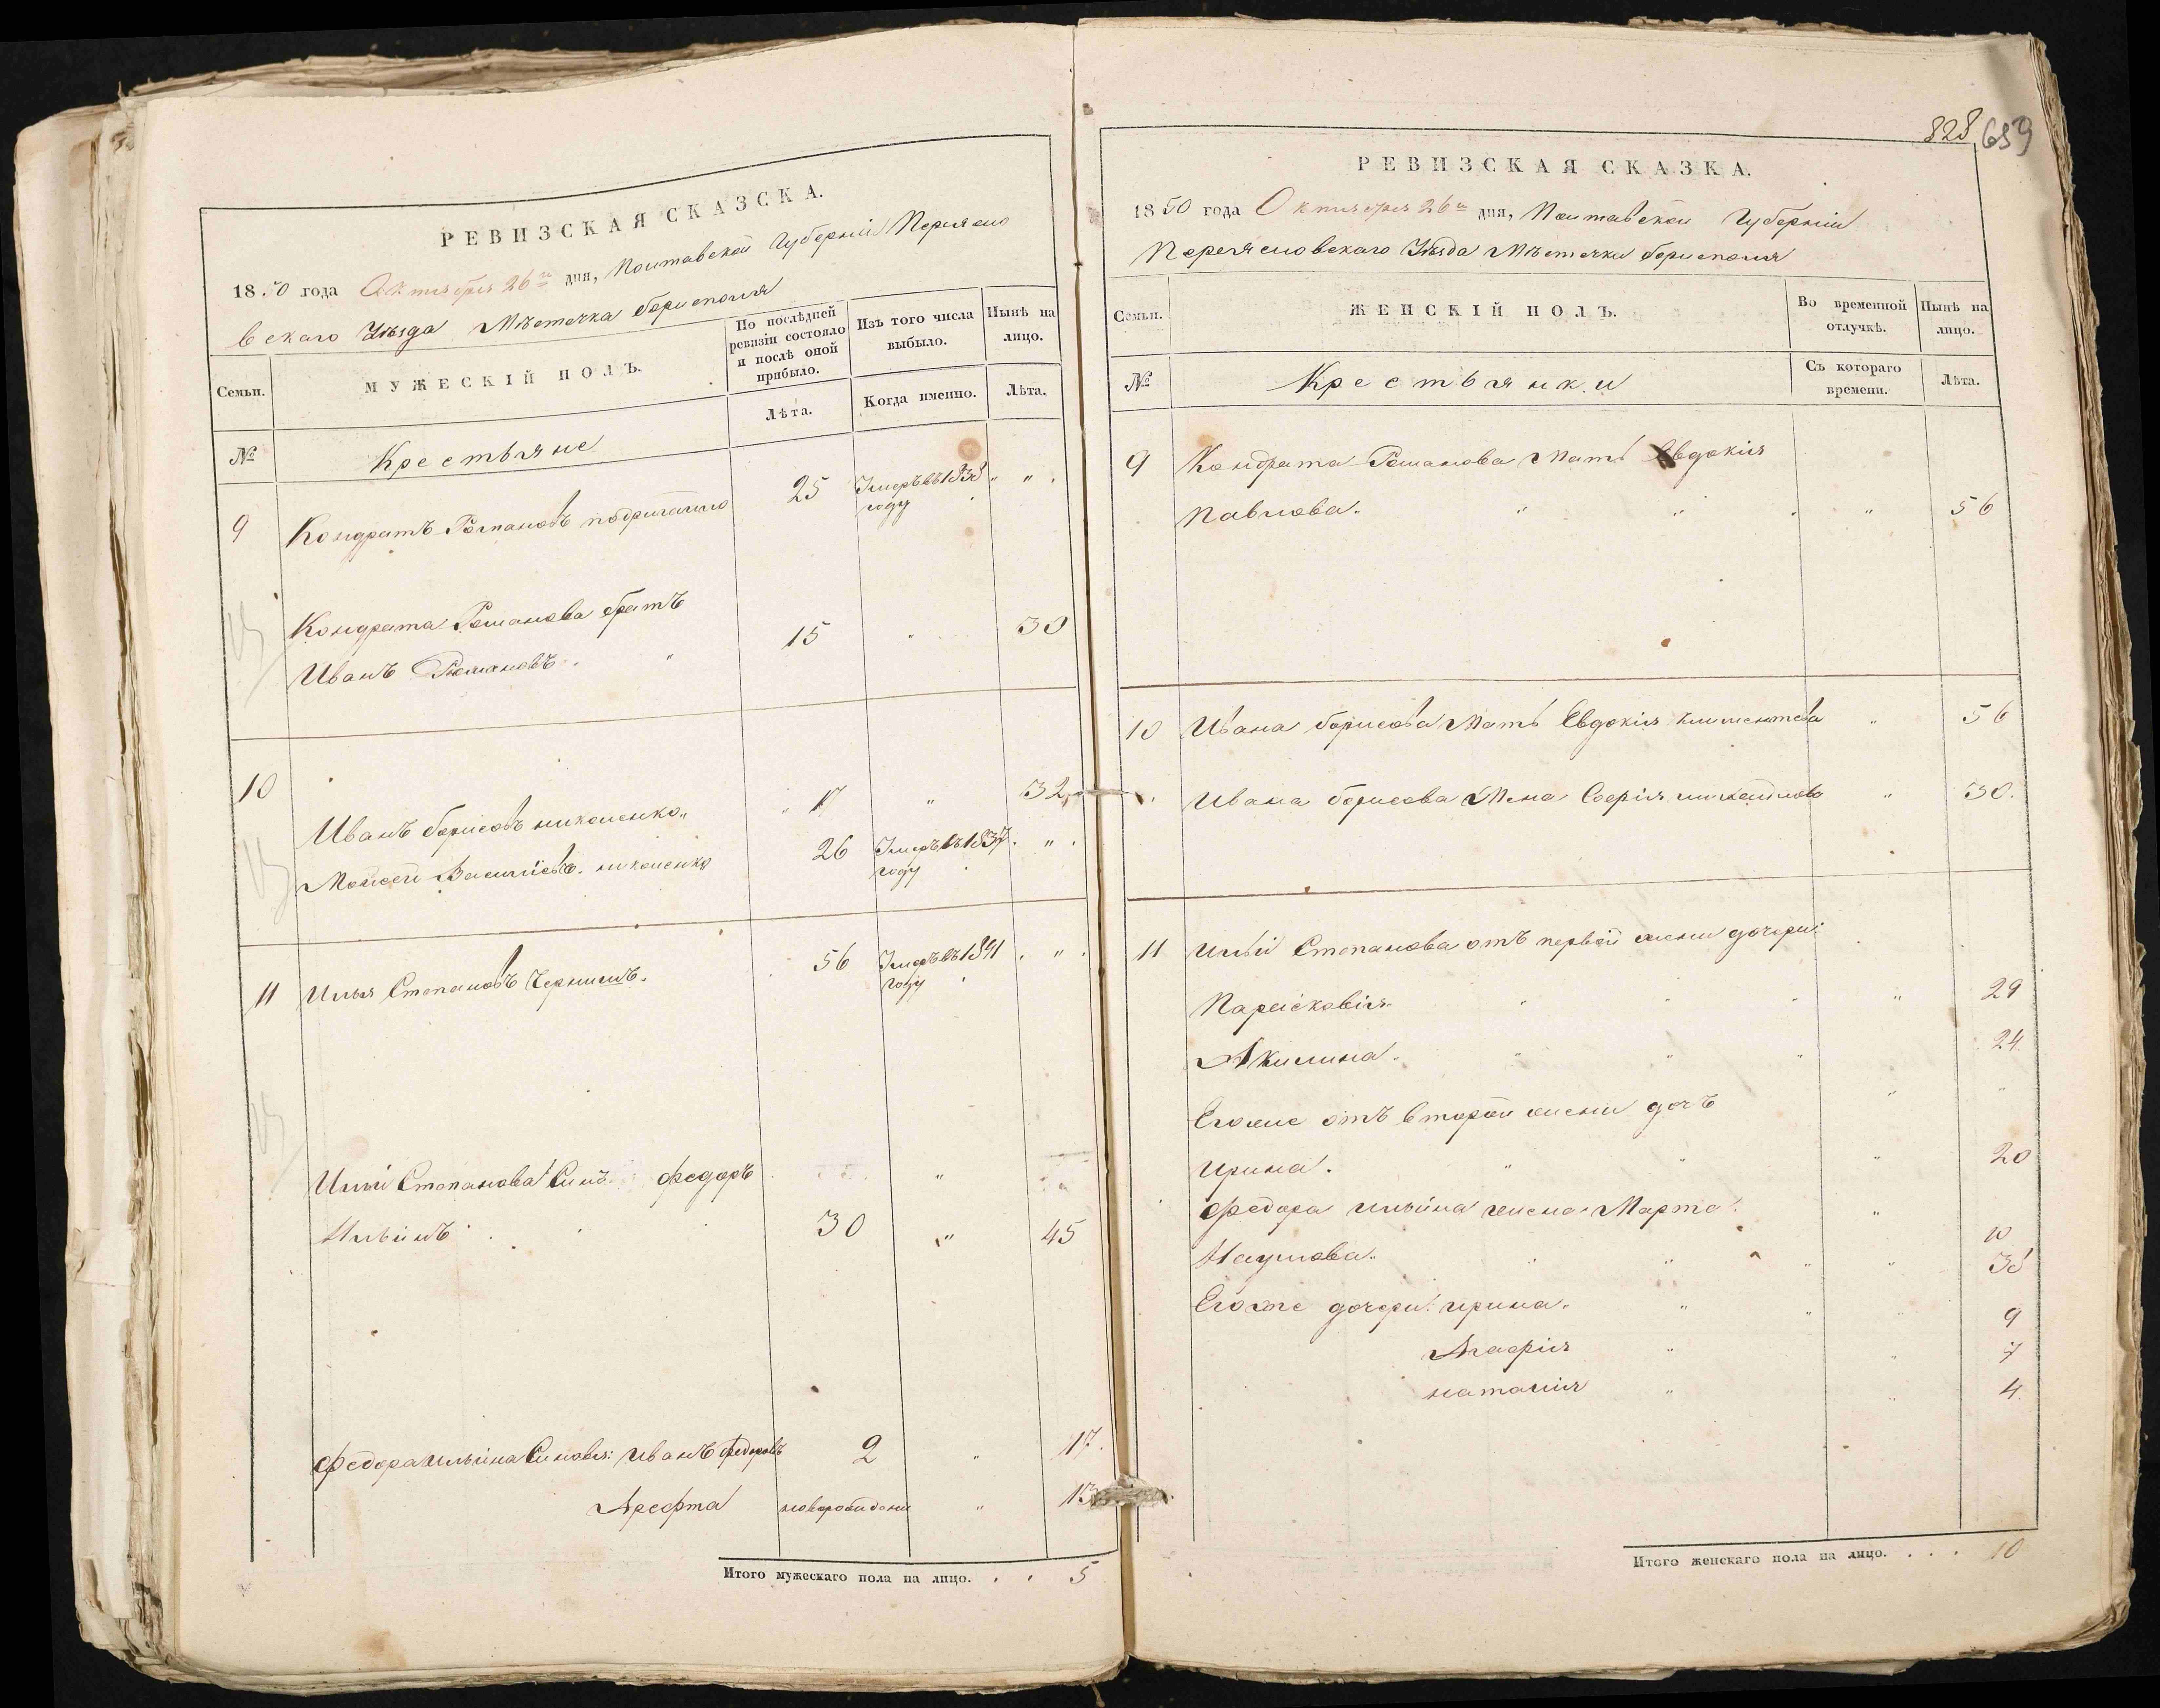 РЕВИЗСКАЯ СКАЗСКА.
1850 года Октября 26го дня, Полтавской Губерніи Переясло
вскаго Уѣзда Мѣстечка Борисполя
Семьи.
МУЖЕСКІЙ ПОЛЪ.
По послѣдней ревизіи состояло и послѣ оной прибыло.
Изъ того числа выбыло.
Нынѣ на лицо.
Лѣта.
Когда именно.
Лѣта.
№
Крестьяне
9 Кондратъ Романовъ 25 Умеръ въ 1838 " " .
году
Кондрата Романова братъ
Иванъ Романовъ. " 15 " 30
10
Иванъ Борисовъ николенко " 17 " 32
Мойсей Василіевъ николенко 26 Умеръ въ 1837 . " .
году
11 Илья Степановъ Чернишъ. 56 Умеръ въ 1841 . " .
году
Ильи Степанова Синъ Федоръ "
Ильинъ 30 " 45
Федора Ильина Синовья: Иванъ Федоровъ 2 " 17.
Арефта новорожденн " 13
Итого мужескаго пола на лицо. . . 5
828 659
РЕВИЗСКАЯ СКАЗКА.
1850 года Октября 26го дня, Полтавской Губерніи
Переясловскаго Уѣзда Мѣстечка Борисполя
Семьи.
ЖЕНСКІЙ ПОЛЪ.
Во временной отлучкѣ.
Нынѣ на лицо.
№
Крестьянки
Съ котораго времени.
Лѣта.
9 Кондрата Романова Мать Евдокія
Павлова. " " " 56
10 Ивана Борисова Мать Евдокія Климентова " 56
Ивана Борисова Жена Софія " 30.
11 Ильи Степанова отъ первой жени дочери:
Парасковія " " " 29
Акилина. " " " 24
Егоже отъ второй жени дочъ " "
Ирина. " " " 20
Федора Ильина жена Марта "
Наумова. " " " " 38
Егоже дочери: Ирина. " " " 9
Агафія " " 7
наталія " " 4.
Итого женскаго пола на лицо. . . . 10